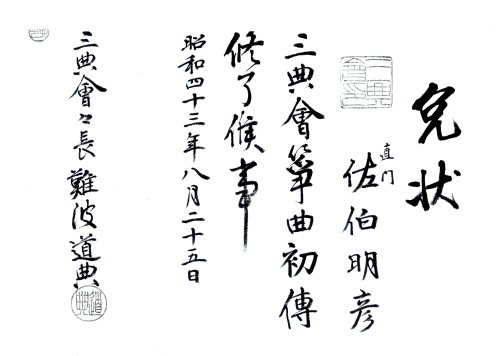 免状
直門
佐伯明彦
三典會箏曲初傳
修了候事
昭和四十三年八月二十五日
三典會々長 難波道典
道典